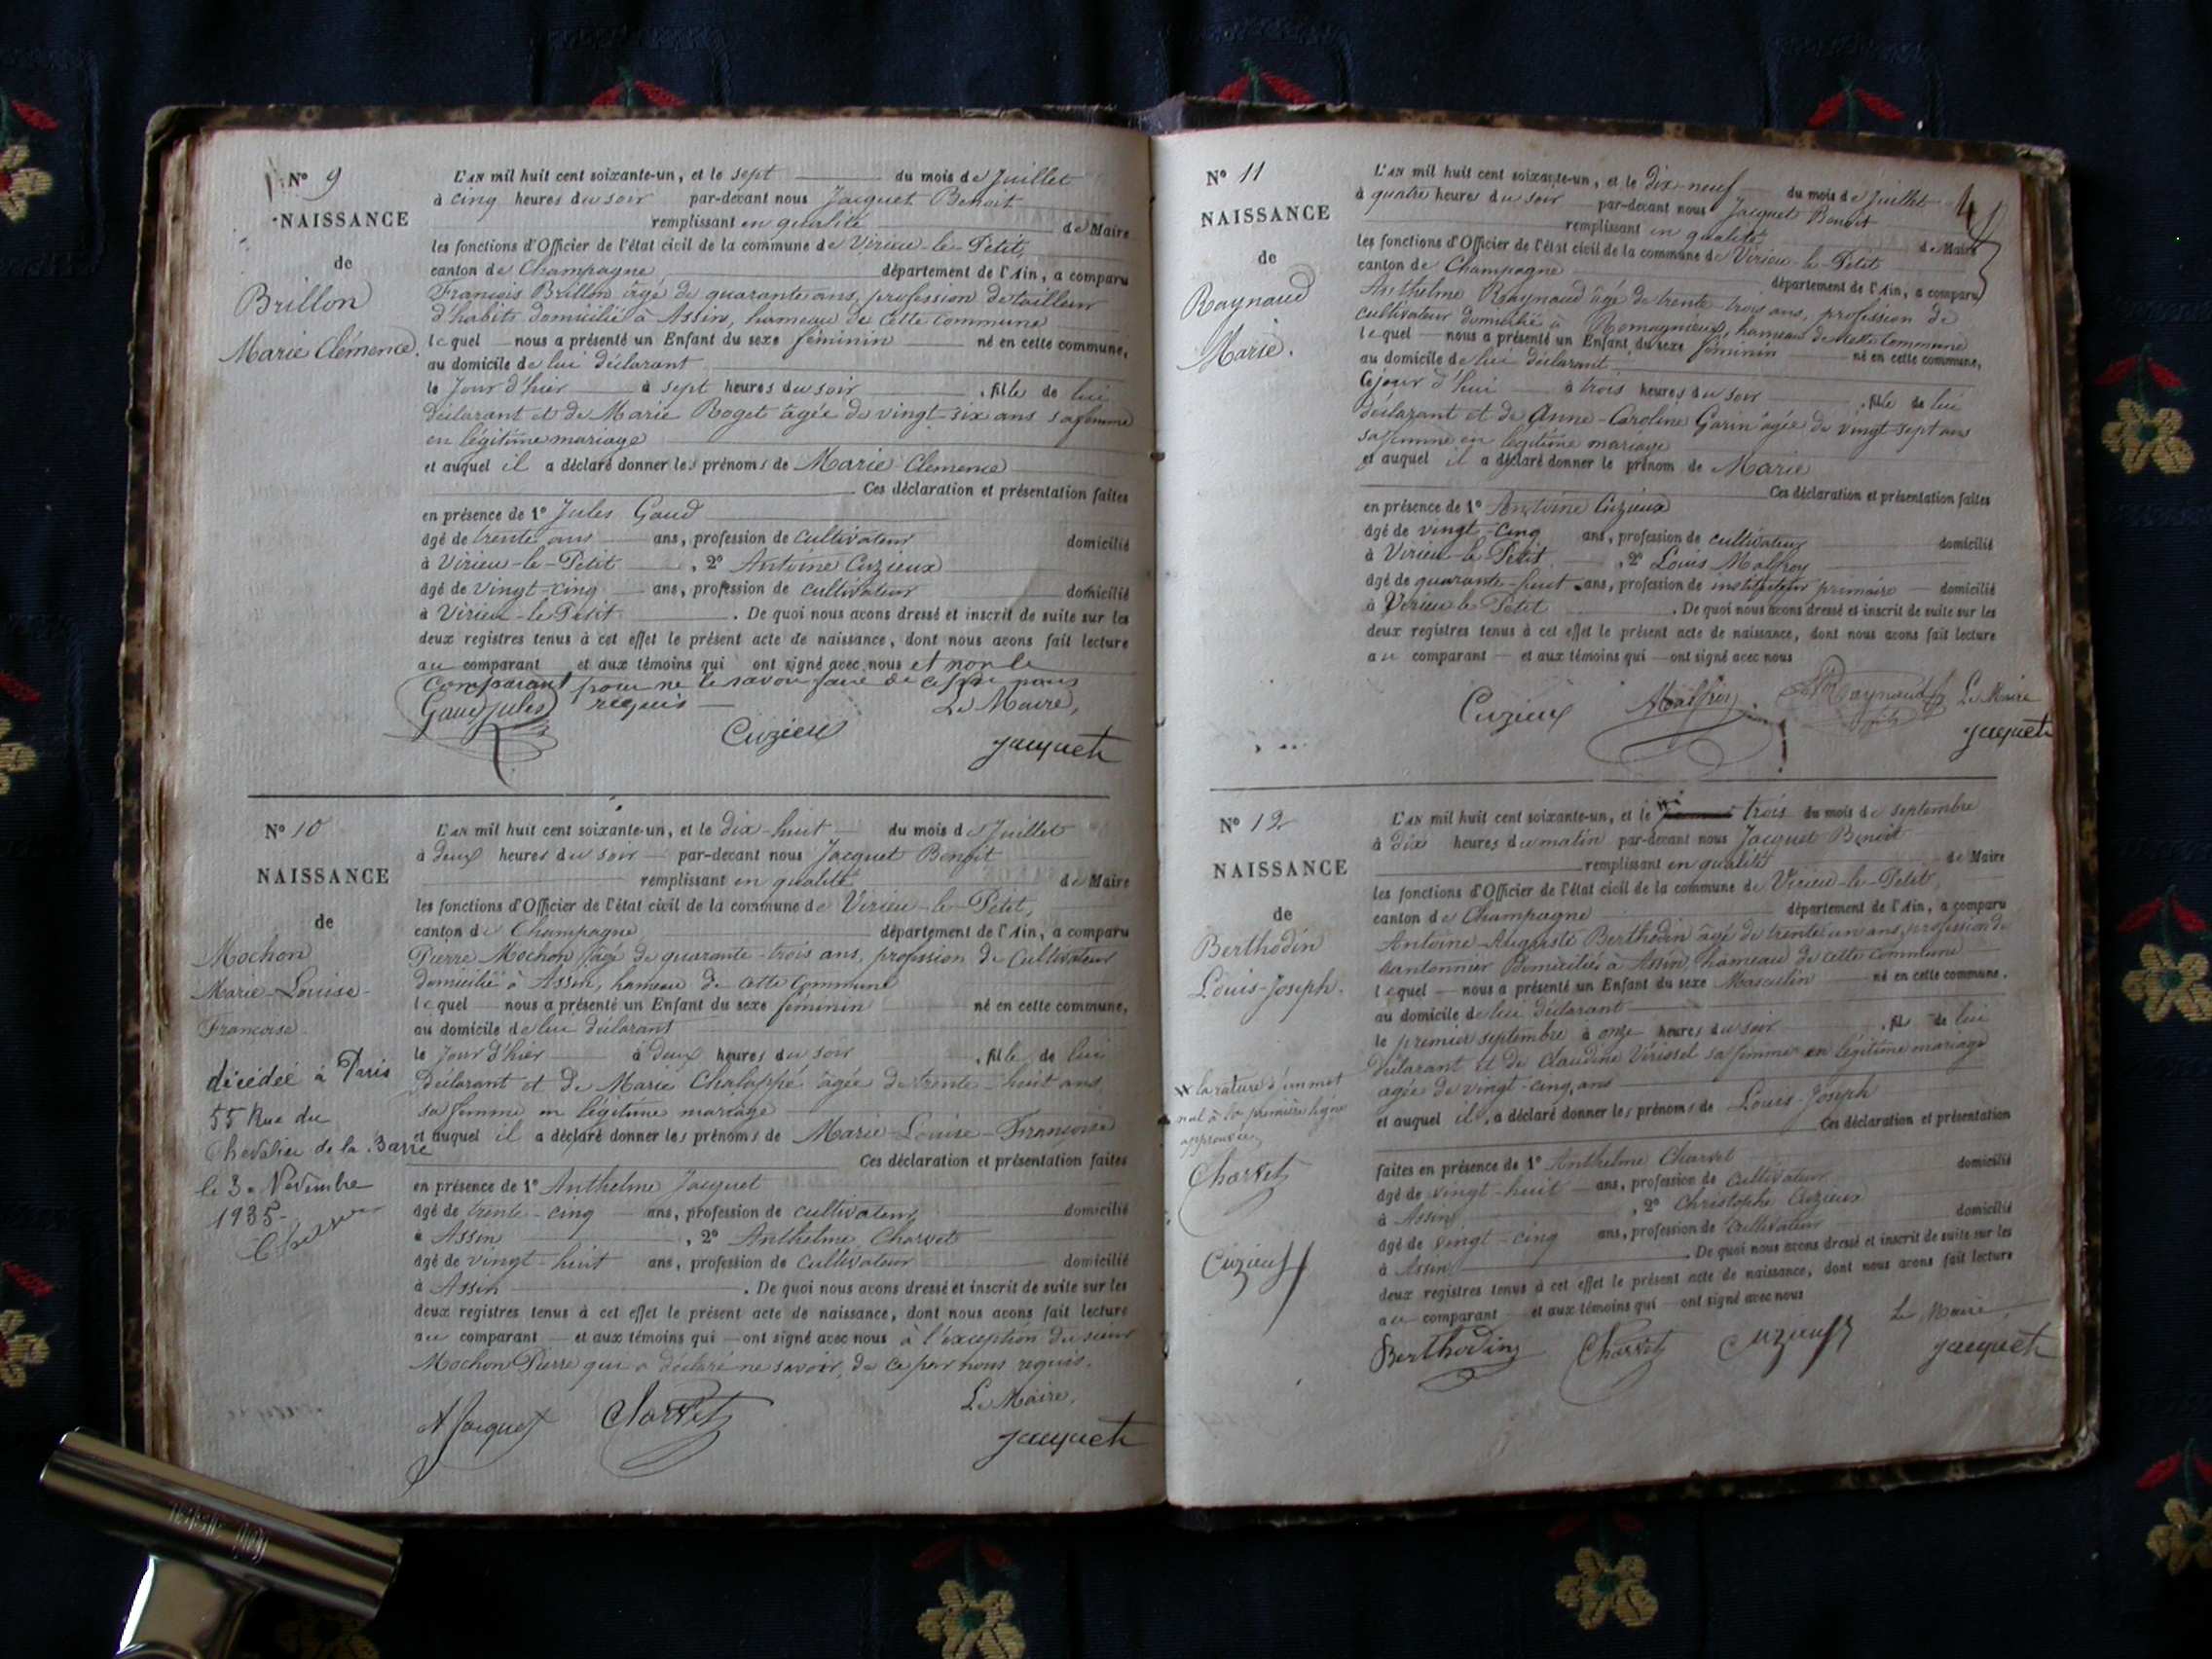 Nº 9
NAISSANCE
de
Brillon
Marie Clémence.
L'AN mil huit cent soixante-un, et le sept du mois de Juillet
à cinq heures du soir par-devant nous Jacquet Benoit
remplissant en qualité de Maire
les fonctions d'Officier de l'état civil de la commune de Virieu-le-Petit,
canton de Champagne département de l'Ain, a comparu
François Brillon âgé de quarante ans, profession de tailleur
d'habits domicilié à Assin, hameau de cette commune
lequel nous a présenté un Enfant du sexe féminin né en cette commune,
au domicile de lui déclarant
le jour d'hier à sept heures du soir , fille de lui
déclarant et de Marie Roget âgée de vingt-six ans sa femme
en légitime mariage
et auquel il a déclaré donner les prénoms de Marie Clemence
Ces déclaration et présentation faites
en présence de 1º Jules Gaud
âgé de trente ans ans, profession de cultivateur domicilié
à Virieu-le-Petit , 2º Antoine Cuzieux
âgé de vingt-cinq ans, profession de cultivateur domicilié
à Virieu-le-Petit . De quoi nous avons dressé et inscrit de suite sur les
deux registres tenus à cet effet le présent acte de naissance, dont nous avons fait lecture
au comparant et aux témoins qui ont signé avec nous et non le
comparant pour ne le savoir faire de ce par nous
Gaud jules requis Le Maire,
Cuzieux Jacquet
Nº 10
NAISSANCE
de
Mochon
Marie-Louise-
Francoise.
décédée à Paris
55 Rue du
Chevalier de la Barre
le 30 Novembre
1935-
L'AN mil huit cent soixante-un, et le dix-huit du mois de Juillet
à deux heures du soir par-devant nous Jacquet Benoit
remplissant en qualité de Maire
les fonctions d'Officier de l'état civil de la commune de Virieu-le-Petit,
canton de Champagne département de l'Ain, a comparu
Pierre Mochon âgé de quarante-trois ans, profession de Cultivateur
domicilié à Assin, hameau de cette commune
lequel nous a présenté un Enfant du sexe féminin né en cette commune,
au domicile de lui déclarant
le jour d'hier à deux heures du soir , fille de lui
Déclarant et de Marie Chalappé âgée de trente-huit ans,
sa femme en légitime mariage
et auquel il a déclaré donner les prénoms de Marie-Louise-Françoise
Ces déclaration et présentation faites
en présence de 1º Anthelme Jacquet
âgé de trente-cinq ans, profession de cultivateur domicilié
à Assin , 2º Anthelme Charvet
âgé de vingt-huit ans, profession de cultivateur domicilié
à Assin . De quoi nous avons dressé et inscrit de suite sur les
deux registres tenus à cet effet le présent acte de naissance, dont nous avons fait lecture
au comparant et aux témoins qui ont signé avec nous à l'exception du sieur
Mochon Pierre qui a déclaré ne savoir, de ce par nous requis.
Le Maire,
A Jacquet Charvet Jacquet
Nº 11
NAISSANCE
de
Raynaud
Marie.
L'AN mil huit cent soixante-un, et le dix-neuf du mois de Juillet
à quatre heures du soir par-devant nous Jacquet Benoit
remplissant en qualité de Maire
les fonctions d'Officier de l'état civil de la commune de Virieu-le-Petit
canton de Champagne département de l'Ain, a comparu
Anthelme Raynaud âgé de trente-trois ans, profession de
cultivateur domicilié à Romagnieux, hameau de cette commune
lequel nous a présenté un Enfant du sexe féminin né en cette commune,
au domicile de lui déclarant
Cejour d'hui à trois heures du soir , fille de lui
déclarant et de Anne-Caroline Garin âgée de vingt-sept ans
sa femme en légitime mariage
et auquel il a déclaré donner le prénom de Marie
Ces déclaration et présentation faites
en présence de 1º Antoine Cuzieux
âgé de vingt-cinq ans, profession de cultivateur domicilié
à Virieu-le-Petit , 2º Louis Malfroy
âgé de quarante-huit ans, profession de instituteur primaire domicilié
à Virieu le Petit . De quoi nous avons dressé et inscrit de suite sur les
deux registres tenus à cet effet le présent acte de naissance, dont nous avons fait lecture
au comparant et aux témoins qui ont signé avec nous
Cuzieux Malfroy Raynaud Le Maire
Jacquet
Nº 12
NAISSANCE
de
Berthodin
Louis-Joseph.
la rature d'un mot
nul à la première ligne
approuvée
Charvet
Cuzieux
L'AN mil huit cent soixante-un, et le trois du mois de septembre
à dix heures du matin par-devant nous Jacquet Benoit
remplissant en qualité de Maire
les fonctions d'Officier de l'état civil de la commune de Virieu-le-Petit,
canton de Champagne département de l'Ain, a comparu
Antoine-Auguste Berthodin âgé de trente un ans, profession de
cantonnier Domicilié à Assin, hameau de cette commune
lequel nous a présenté un Enfant du sexe Masculin né en cette commune.
au domicile de lui déclarant
le premier septembre à onze heures du soir , fils de lui
déclarant et de Claudine Vérissel sa femme en légitime mariage
agée de vingt-cinq ans
et auquel il a déclaré donner les prénoms de Louis-Joseph
Ces déclaration et présentation
faites en présence de 1º Anthelme Charvet
âgé de vingt-huit ans, profession de cultivateur domicilié
à Assin , 2º Christophe Cuzieux
âgé de vingt-cinq ans, profession de cultivateur domicilié
à Assin . De quoi nous avons dressé et inscrit de suite sur les
deux registres tenus à cet effet le présent acte de naissance, dont nous avons fait lecture
au comparant et aux témoins qui ont signé avec nous
Le Maire,
Berthodin Charvet Cuzieux Jacquet